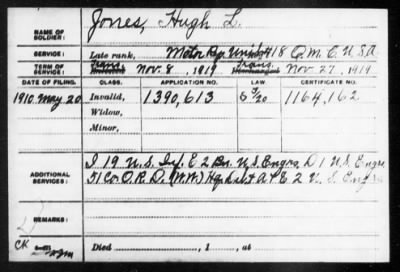 NAME OF SOLDIER: Jones, Hugh L.
SERVICE: Late rank, Motor Rep. Unit 418 Q.M.C. U.S.A
TERM OF SERVICE: Trans. Enlisted Nov. 8, 1919 Trans. Discharged Nov. 27, 1919
DATE OF FILING. CLASS. APPLICATION NO. LAW. CERTIFICATE NO.
1910 May 20 Invalid, 1390,613 1164,162
Widow,
Minor,
ADDITIONAL SERVICES: I 19 U.S. Inf. E 2 Bn. U.S. Engrs, D 1 U.S. Engrs
51 Co. O.R.D. (W.W.) Hq. & E 2 U.S. Engrs
REMARKS:
CK
Died , 1 , at